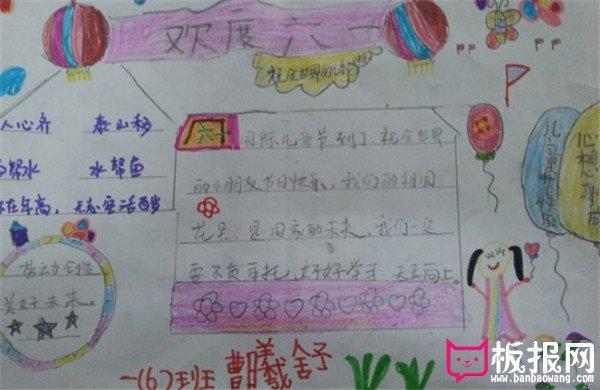 欢度六一
祝全世界
人心齐 泰山移
帮水 水帮鱼
不在年高，无志空活百岁
六一 国际儿童节到了，祝全世界
的小朋友节日快乐，我们的祖国
花朵，是国家的未来，我们一定
要不负重托，好好学习，天天向上。
劳动创造
美好未来。
儿童节快乐
心想事成
一(6)班 曹曦
板报网
www.banbaowang.com